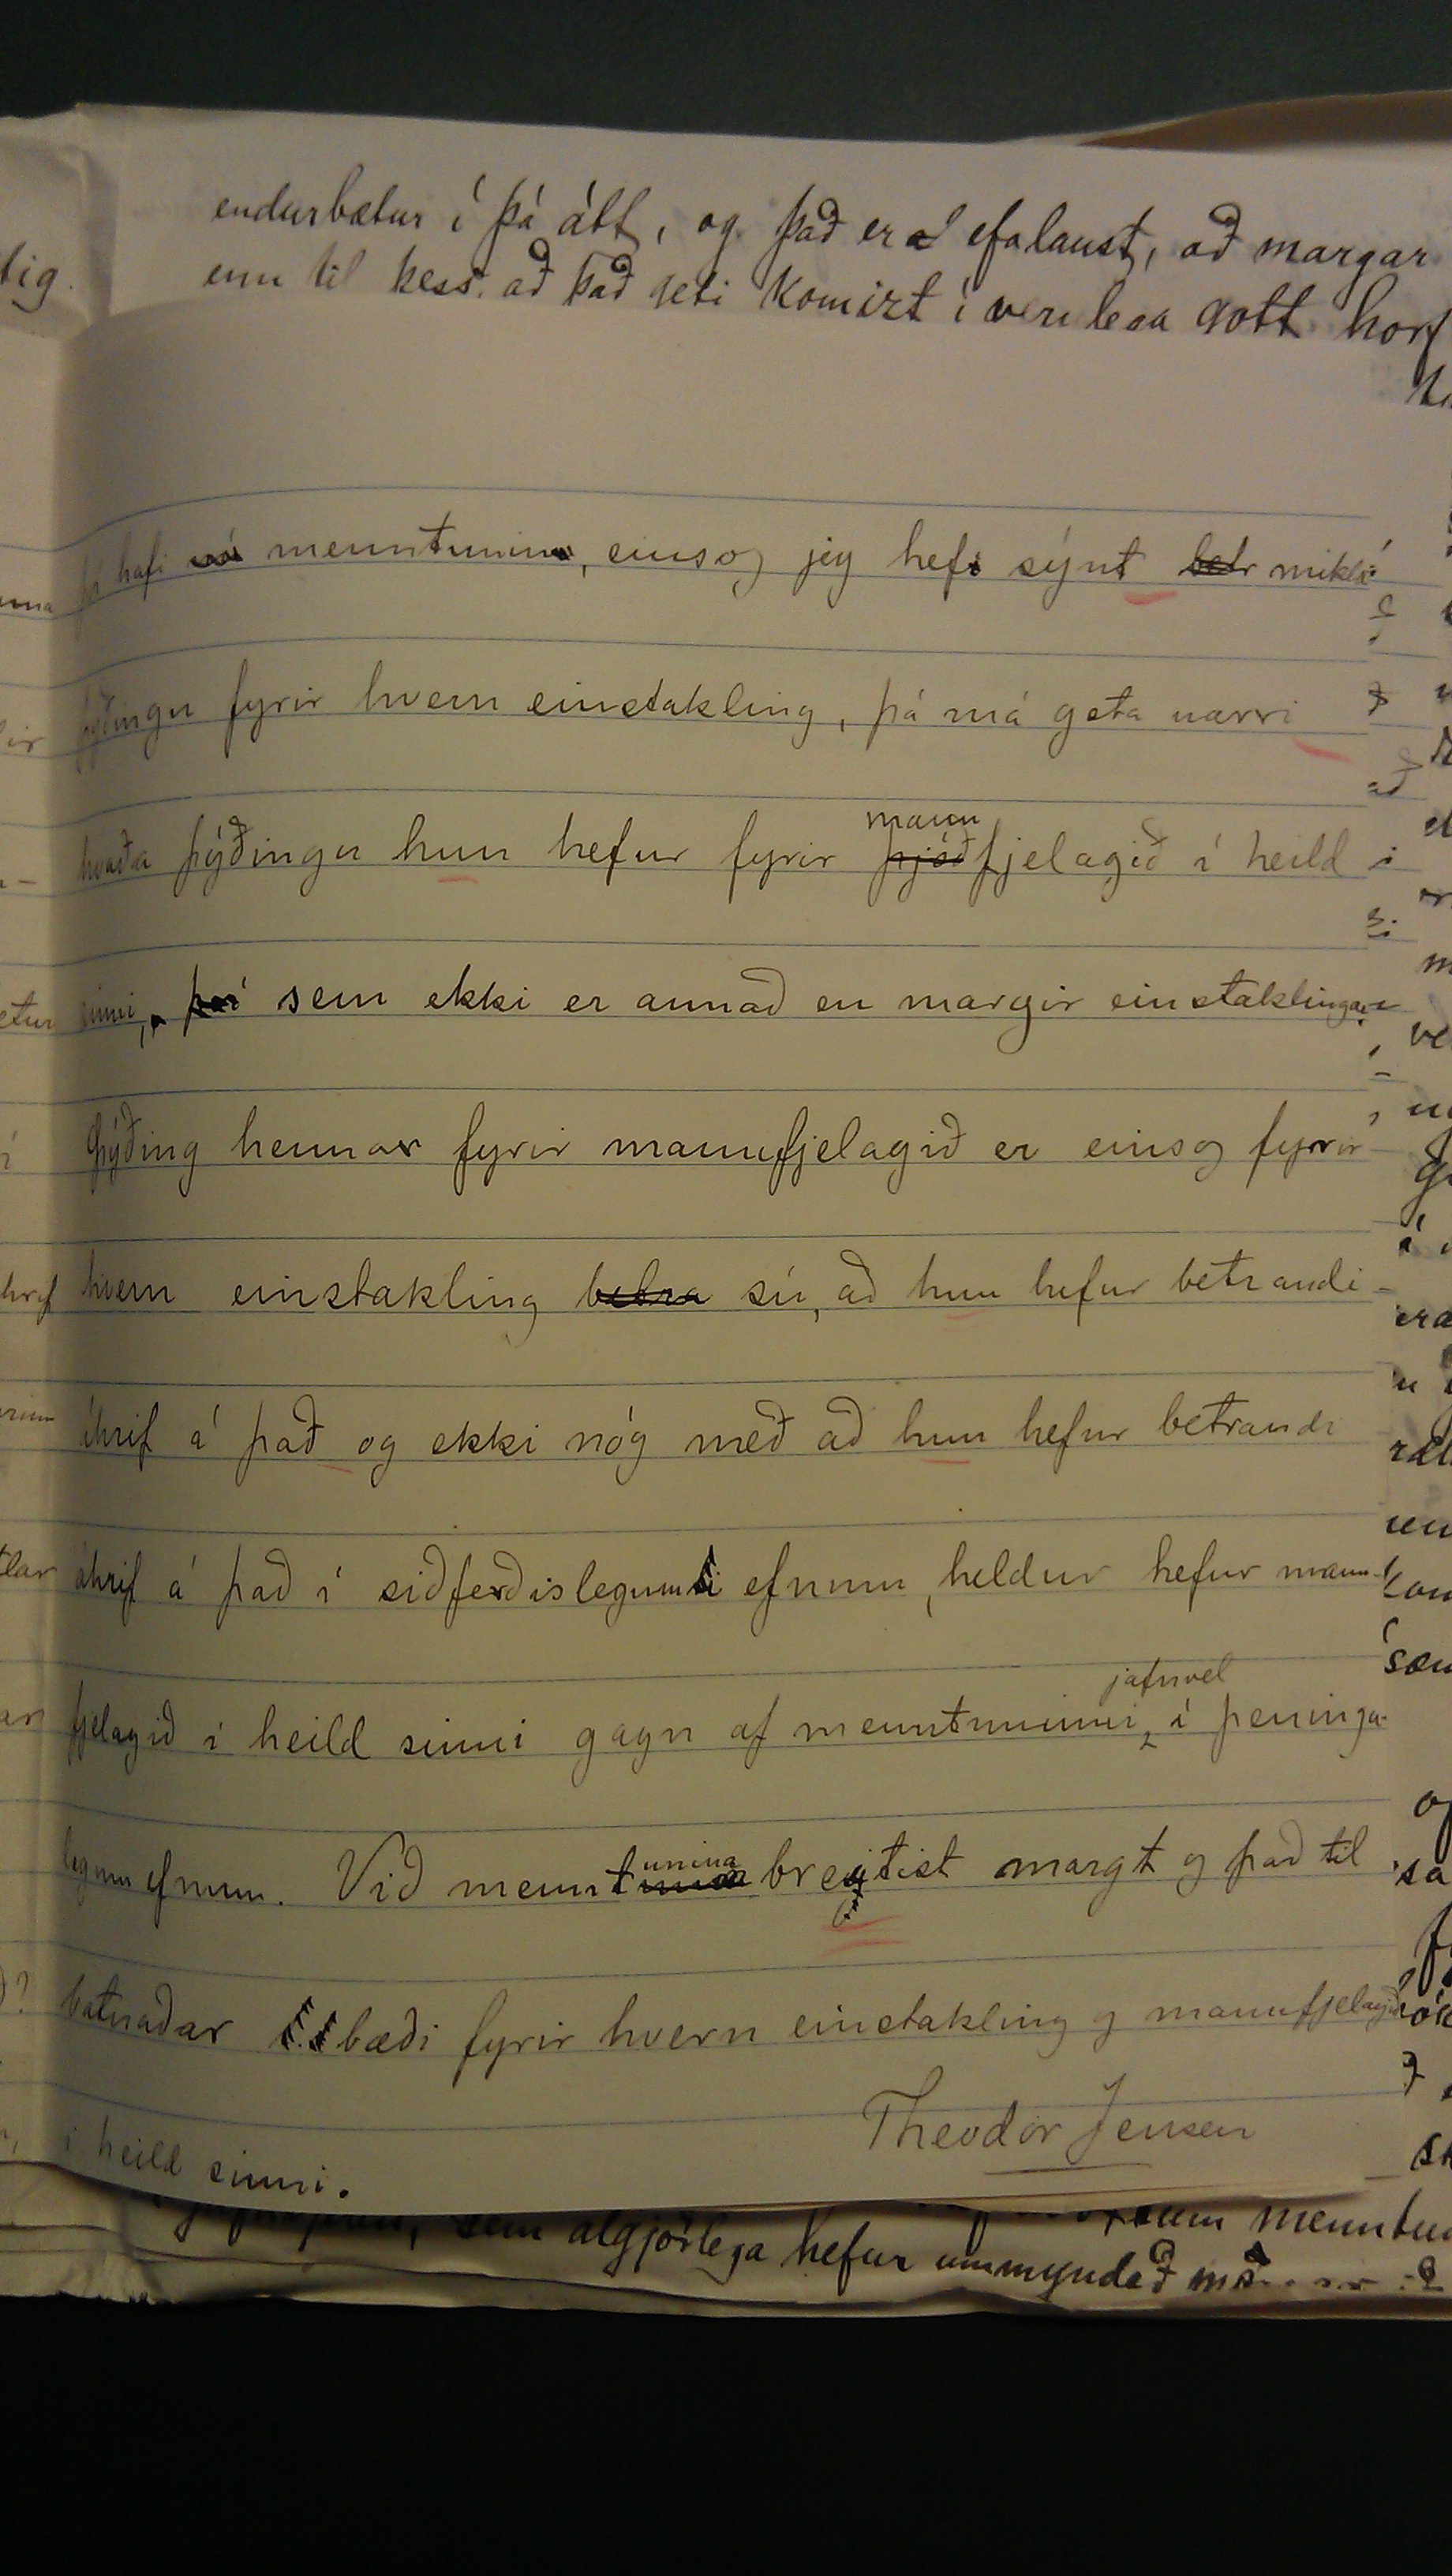 endurbætur í þá átt, og það er efalaust, að margar
enn til þess að það geti komizt í verulega gott horf
hafi menntunin, einsog jeg hefi sýnt betr mikla
þýðingu fyrir hvern einstakling, þá má geta nærri
hvaða þýðingu hun hefur fyrir þjóð mann fjelagið í heild
sinni, því sem ekki er annað en margir einstaklingar
Þýðing hennar fyrir mannfjelagið er einsog fyrir
hvern einstakling betra sú, að hun hefur betrandi
áhrif á það og ekki nóg með að hun hefur betrandi
áhrif á það í siðferðislegum efnum, heldur hefur mann-
fjelagið í heild sinni gagn af menntuninni, jafnvel í peninga-
legum efnum. Við menntunina breytist margt og það til
batnaðar bæði fyrir hvern einstakling og mannfjelagið
í heild sinni.
Theodór Jensen
sem algjörlega hefur ummyndað